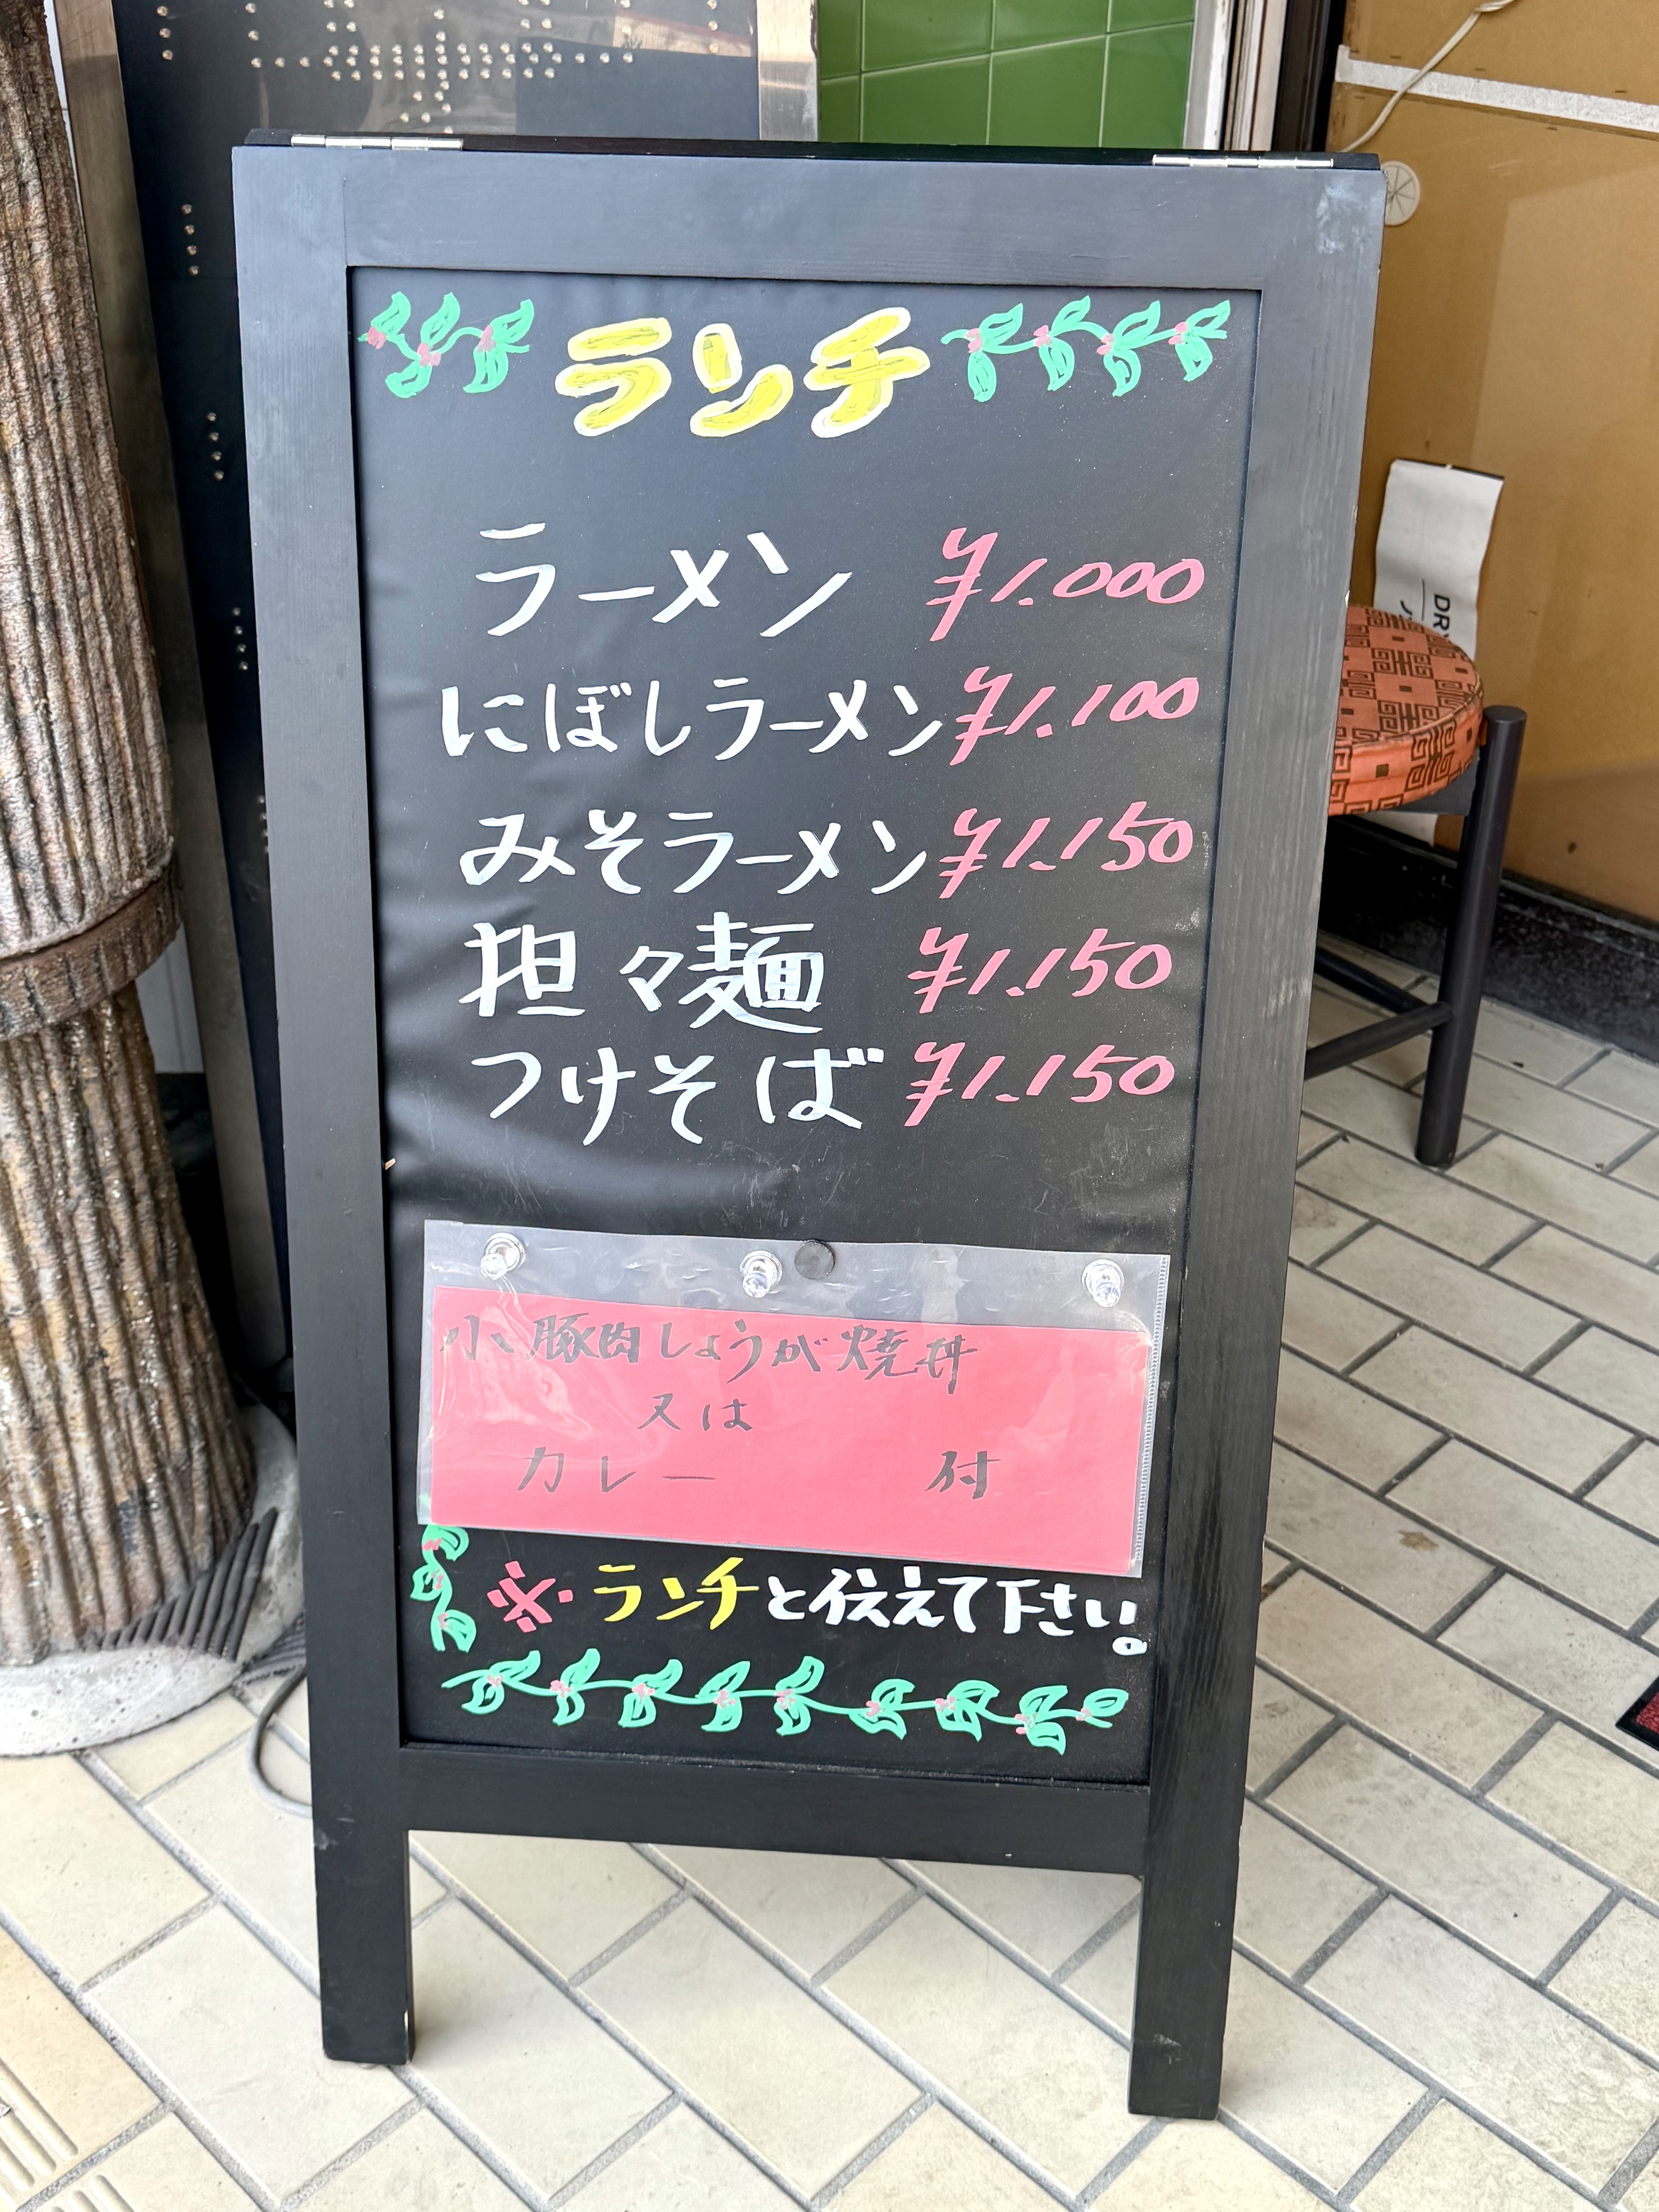 ランチ
ラーメン ¥1.000
にぼしラーメン ¥1.100
みそラーメン ¥1.150
担々麺 ¥1.150
つけそば ¥1.150
小、豚肉しょうが焼丼
又は
カレー 付
※ランチと伝えて下さい。
DR